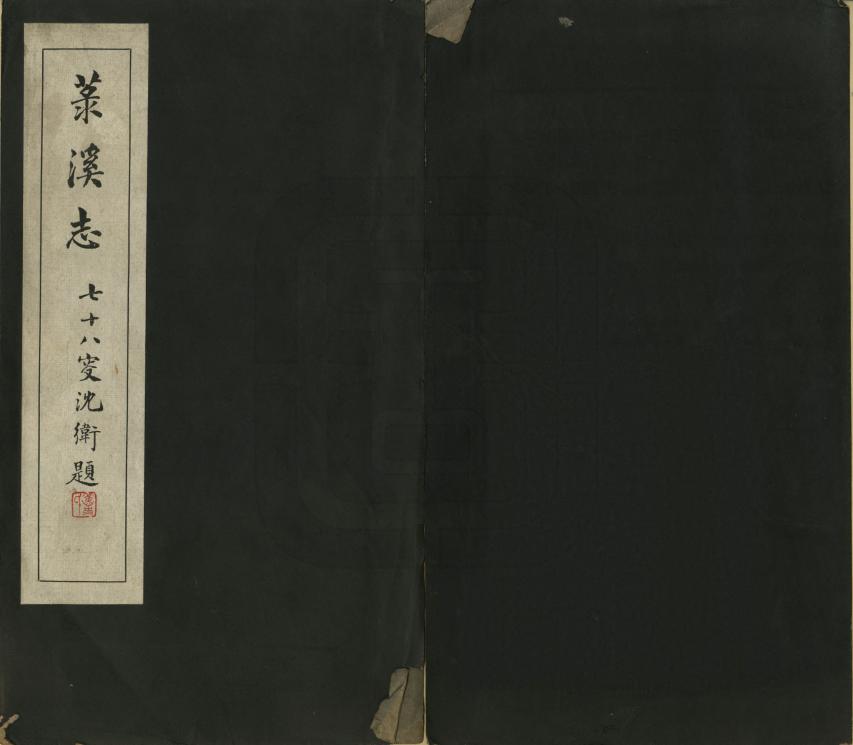 菉溪志
七十八叟沈衛題